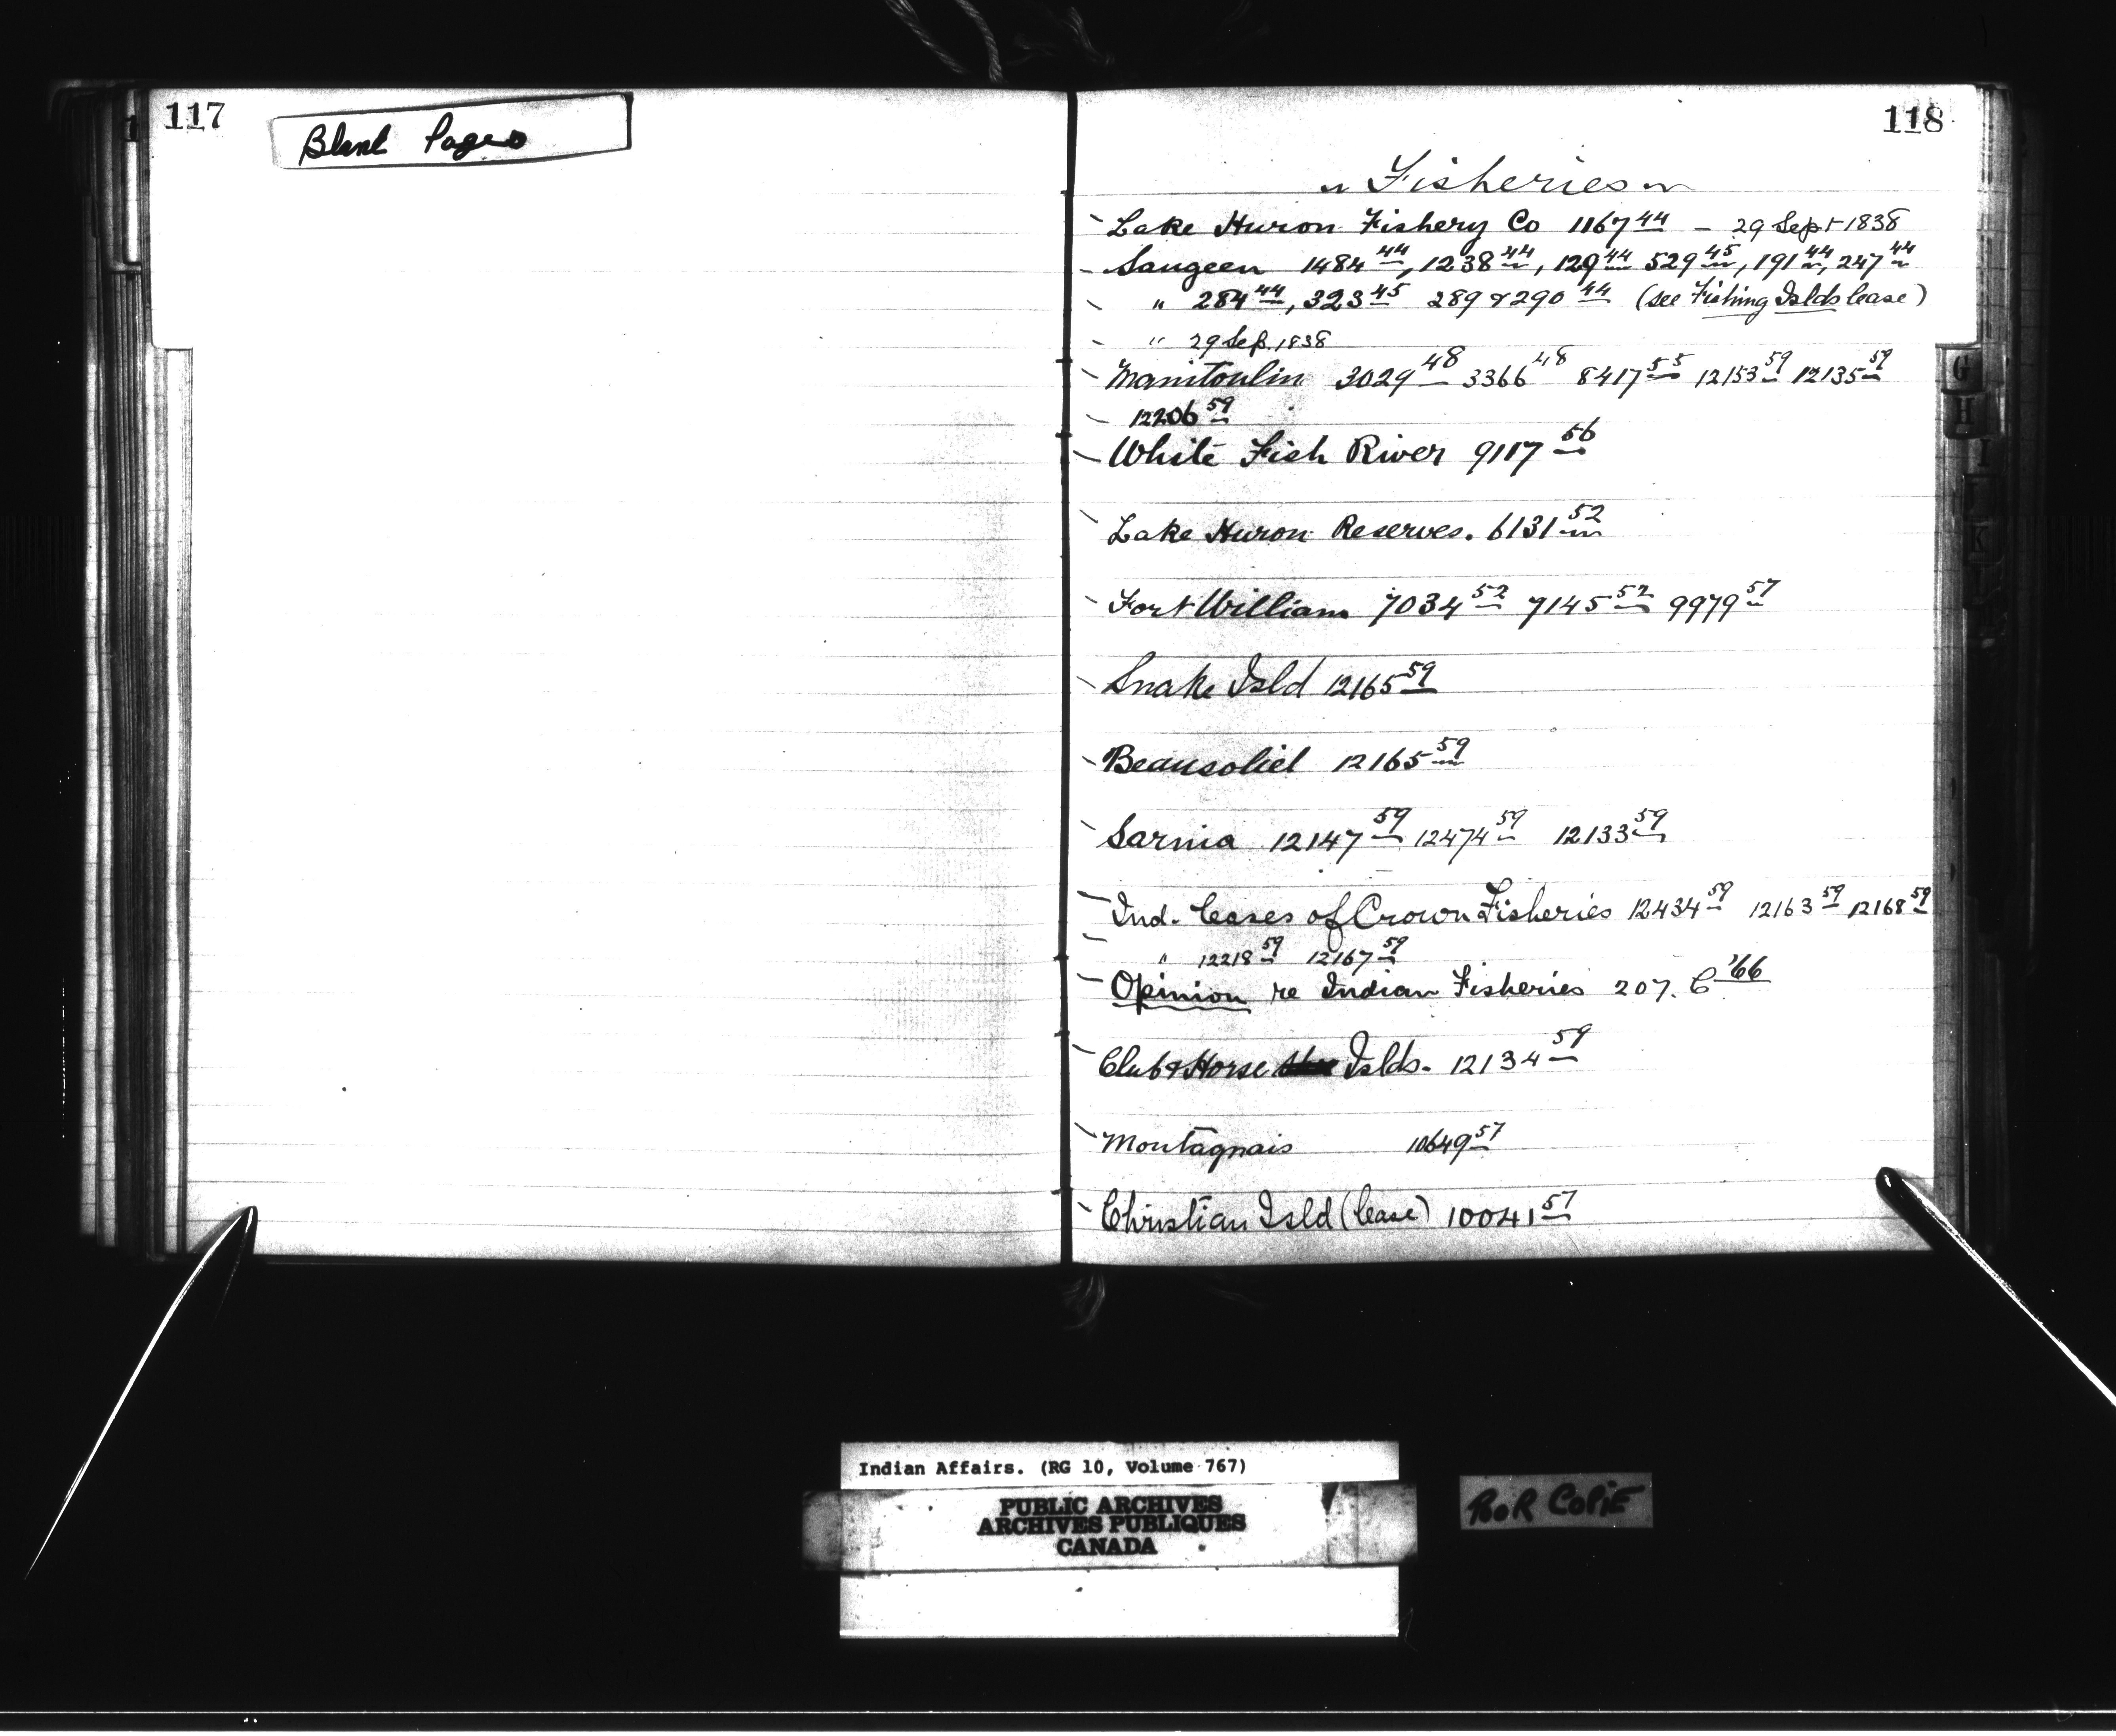 117
Blank Pages
118
Fisheries
Lake Huron Fishery Co 1167 44 - 29 Sept 1838
Saugeen 1484 44, 1238 44, 129 44 529 45, 191 44, 247 44
" 284 44, 323 45 289 & 290 44 (see Fishing Islds lease)
" 29 Sep. 1838
Manitoulin 3029 48 3366 48 8417 55 12153 59 12135 59
12206 59
White Fish River 9117 56
Lake Huron Reserves. 6131 52
Fort William 7034 52 7145 52 9979 57
Snake Isld 12165 59
Beausoliel 12165 59
Sarnia 12147 59 12474 59 12133 59
Ind. leases of Crown Fisheries 12434 59 12163 59 12168 59
" 12218 59 12167 59
Opinion re Indian Fisheries 207. C '66
Club & Horse Islds. 12134 59
Montagnais 10649 57
Christian Isld (lease) 10041 57
G
H
I
K
L
Indian Affairs. (RG 10, Volume 767)
PUBLIC ARCHIVES
ARCHIVES PUBLIQUES
CANADA
POOR COPIE